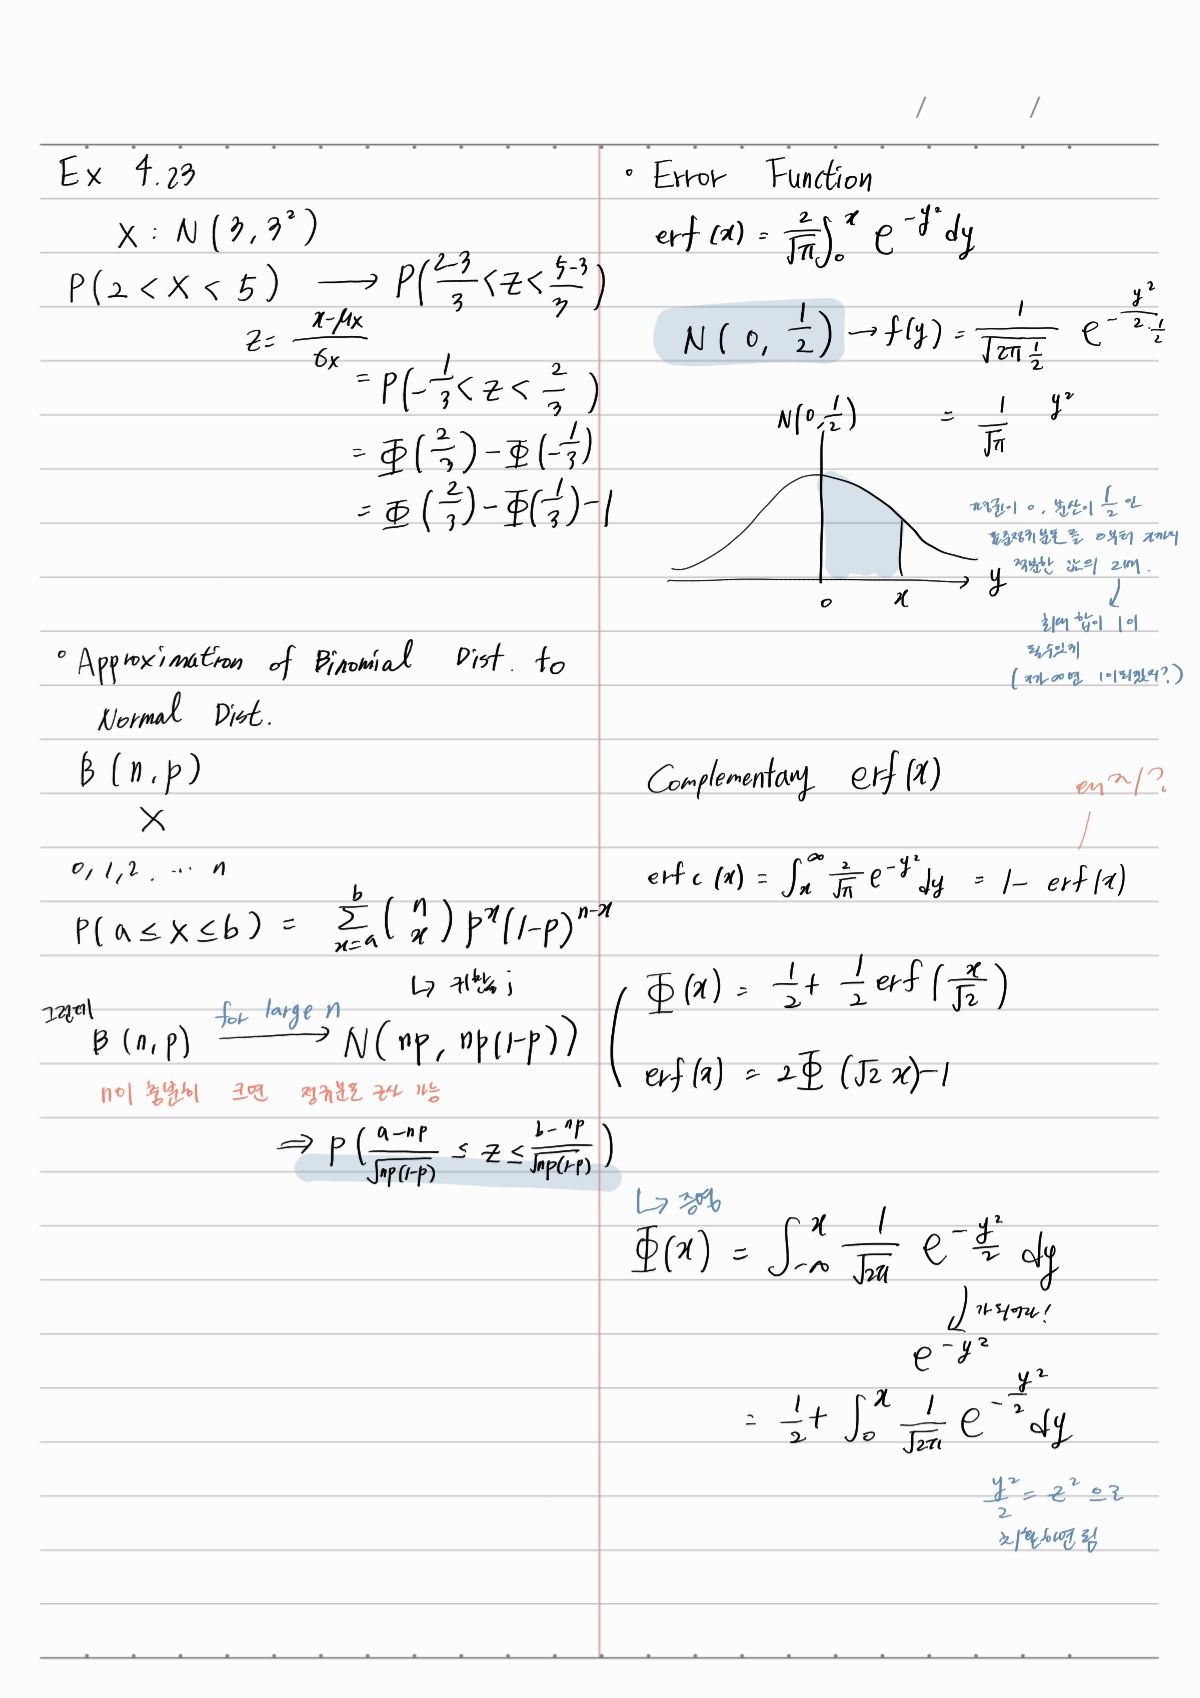 Ex 4.23
X : N(3, 3²)
P(2 < X < 5) → P((2-3)/3 < Z < (5-3)/3)
Z = (x-μx)/σx
= P(-1/3 < Z < 2/3)
= Φ(2/3) - Φ(-1/3)
= Φ(2/3) - Φ(1/3) - 1
° Approximation of Binomial Dist. to
Normal Dist.
B(n, p)
X
0, 1, 2, ... n
P(a ≤ X ≤ b) = Σ_{x=a}^{b} (n x) p^x (1-p)^{n-x}
↳ 귀찮음;
그런데
B(n, p) for large n → N(np, np(1-p))
n이 충분히 크면 정규분포 근사 가능
⇒ P((a-np)/√np(1-p) ≤ Z ≤ (b-np)/√np(1-p))
° Error Function
erf(x) = 2/√π ∫_0^x e^{-y²} dy
N(0, 1/2) → f(y) = 1/√(2π 1/2) e^{-y²/(2·1/2)}
N(0, 1/2) = 1/√π y²
평균이 0, 분산이 1/2 인
표준정규분포를 0부터 x까지
적분한 값의 2배.
0 x y
최대 합이 1이
될수있게
(x가 ∞면 1이되겠지?)
Complementary erf(x)
왜지?
erfc(x) = ∫_x^∞ 2/√π e^{-y²} dy = 1 - erf(x)
Φ(x) = 1/2 + 1/2 erf(x/√2)
erf(x) = 2Φ(√2 x) - 1
↳ 증명
Φ(x) = ∫_{-∞}^x 1/√2π e^{-y²/2} dy
↓ 가 되어라!
e^{-y²}
= 1/2 + ∫_0^x 1/√2π e^{-y²/2} dy
y²/2 = z² 으로
치환하면 됨